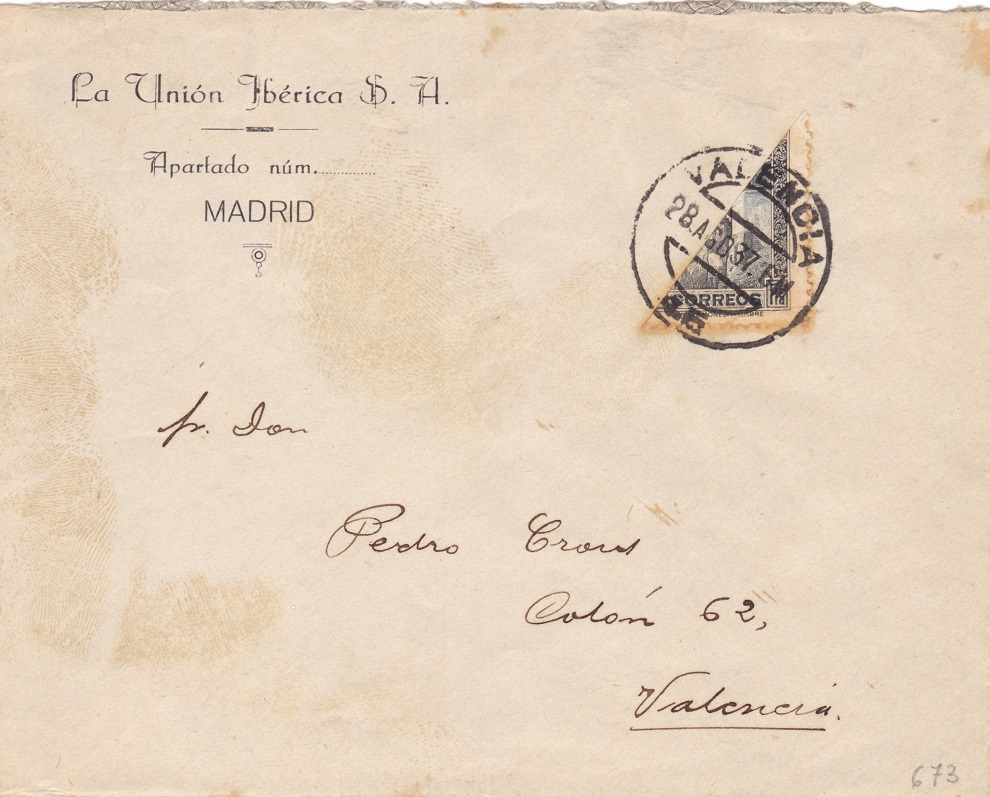 La Unión Ibérica S. A.
Apartado núm.............
MADRID
VALENCIA
28.AGO.37.
CORREOS 1 PTA
pr. Don
Pedro Crous
Colón 62,
Valencia.
673